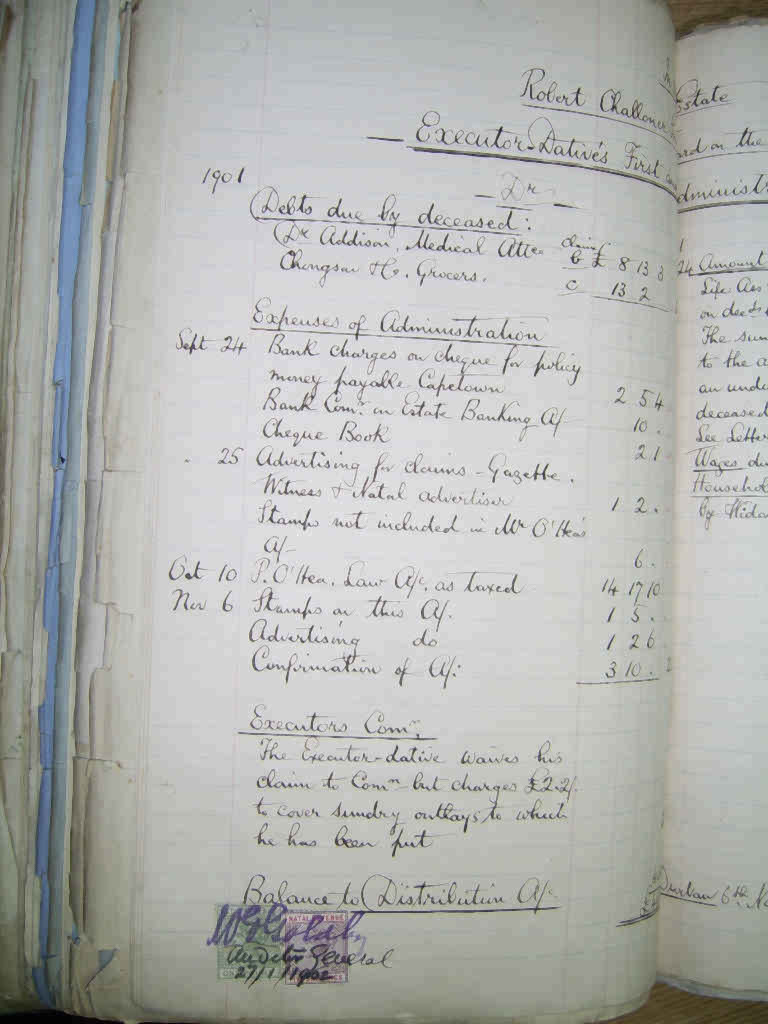 Robert Challoner
Executor-Dative's First
1901
Dr
Debts due by deceased:
Dr Addison, Medical Attce claim B £ 8 13 3
Chongsar & Co. Grocers. C 13 2
Expenses of Administration
Sept 24 Bank charges on cheque for policy
money payable Capetown 2 5 4
Bank Comn. on Estate Banking A/c 10 .
Cheque Book 2 1
" 25 Advertising for claims - Gazette.
Witness & Natal advertiser 1 2 .
Stamps not included in Mr O'Hea's
A/c 6 .
Oct 10 P. O'Hea, Law A/c, as taxed 14 17 10
Nov 6 Stamps on this A/c. 1 5 .
Advertising do 1 2 6
Confirmation of A/c: 3 10 .
Executors Comn.
The Executor-dative waives his
claim to Comn but charges £2.2/-
to cover sundry outlays to which
he has been put
Balance to Distribution A/c
Auditor General
27/1/1902
NATAL REVENUE
Estate
and on the
Administr
24 Amount
Life Ass
on decd's
The sum
to the a
an unde
deceased
See Letter
Wages du
Household
by
Durban 6th No